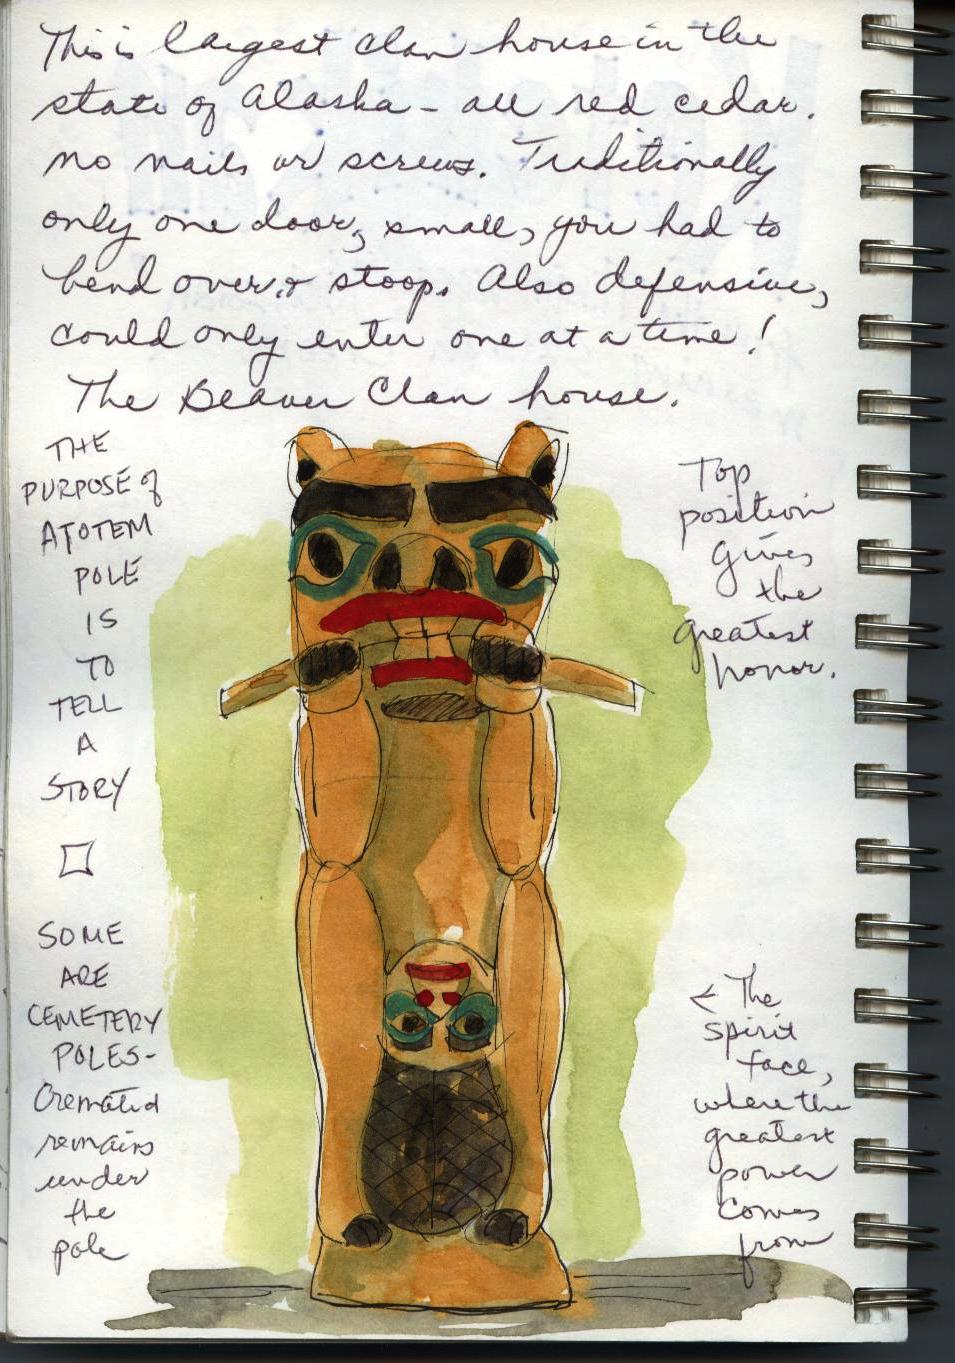 This is largest clan house in the
state of Alaska - all red cedar.
no nails or screws. Traditionally
only one door, small, you had to
bend over & stoop. Also defensive,
could only enter one at a time!
The Beaver Clan house.
THE
PURPOSE of
A TOTEM
POLE
IS
TO
TELL
A
STORY
SOME
ARE
CEMETERY
POLES-
Cremated
remains
under
the
pole
Top
position
gives
the
greatest
honor.
← The
spirit
face,
where the
greatest
power
comes
from